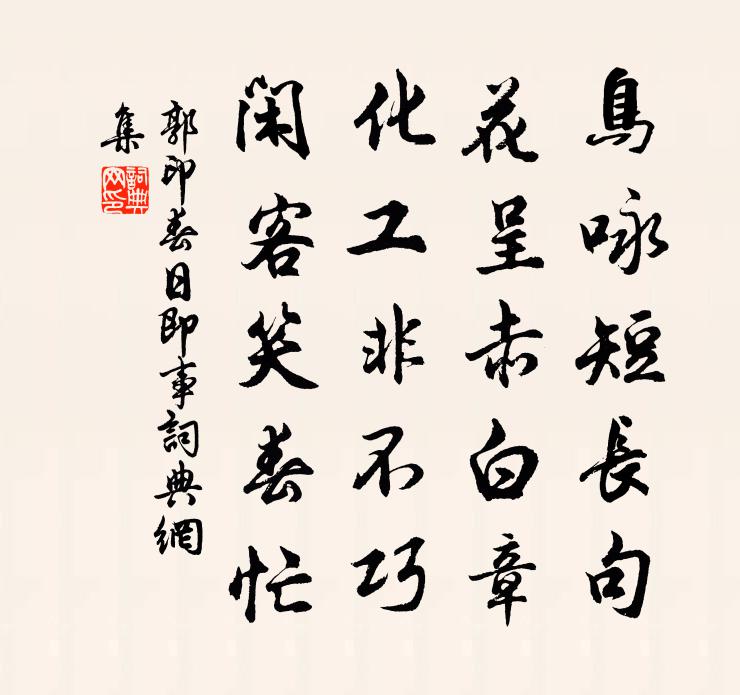 鳥咏短長句
花呈赤白章
化工非不巧
閑客笑春忙
郭印春日即事詞典網
集
詞典
网印